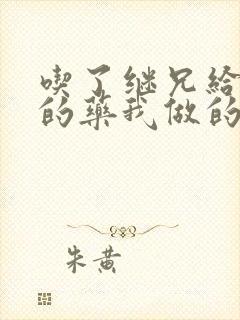 喫了继兄给
的藥我做的
朱黄